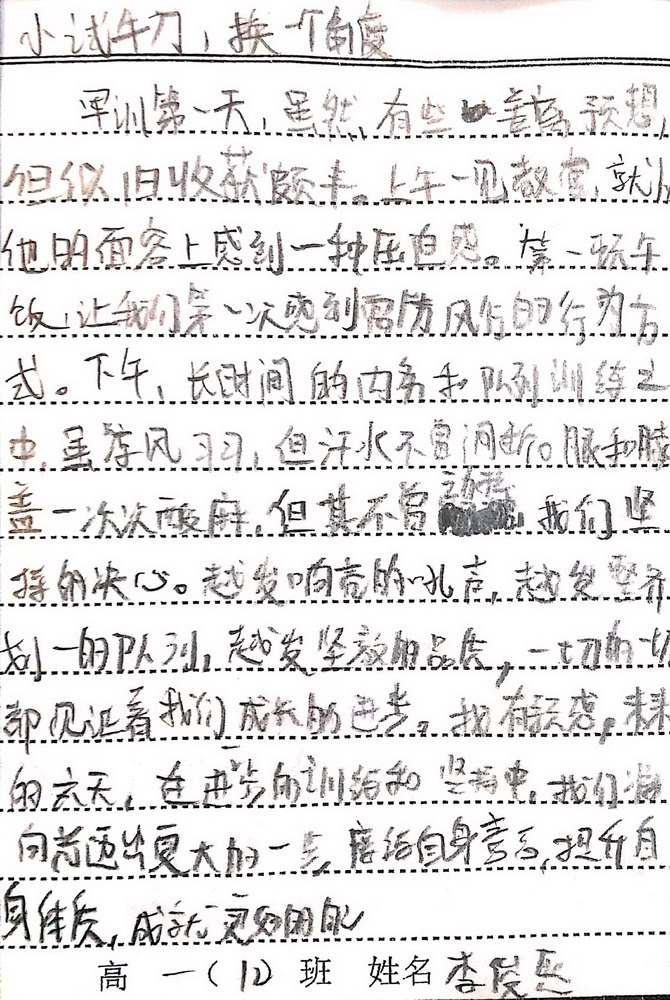 小试牛刀，换一个角度
军训第一天，虽然有些 预想，
但依旧收获颇丰。上午一见教官，就从
他的面容上感到一种压迫感。第一顿午
饭，让我们第一次感到 风行的行为方
式。下午，长时间的内务和队列训练之
中，虽 风习习，但汗水不曾间断。腿和膝
盖一次次酸麻，但其不曾 我们坚
持的决心。越发响亮的 声，越发整齐
划一的队列，越发坚毅的品质，一切的一切
都见证着我们成长的进步。我有预感，未来
的六天，在进步的训练和坚持中，我们
向前迈出更大的一步，磨练自身意志，提升自
身体质，成就更好的
高一（12）班 姓名 李俊